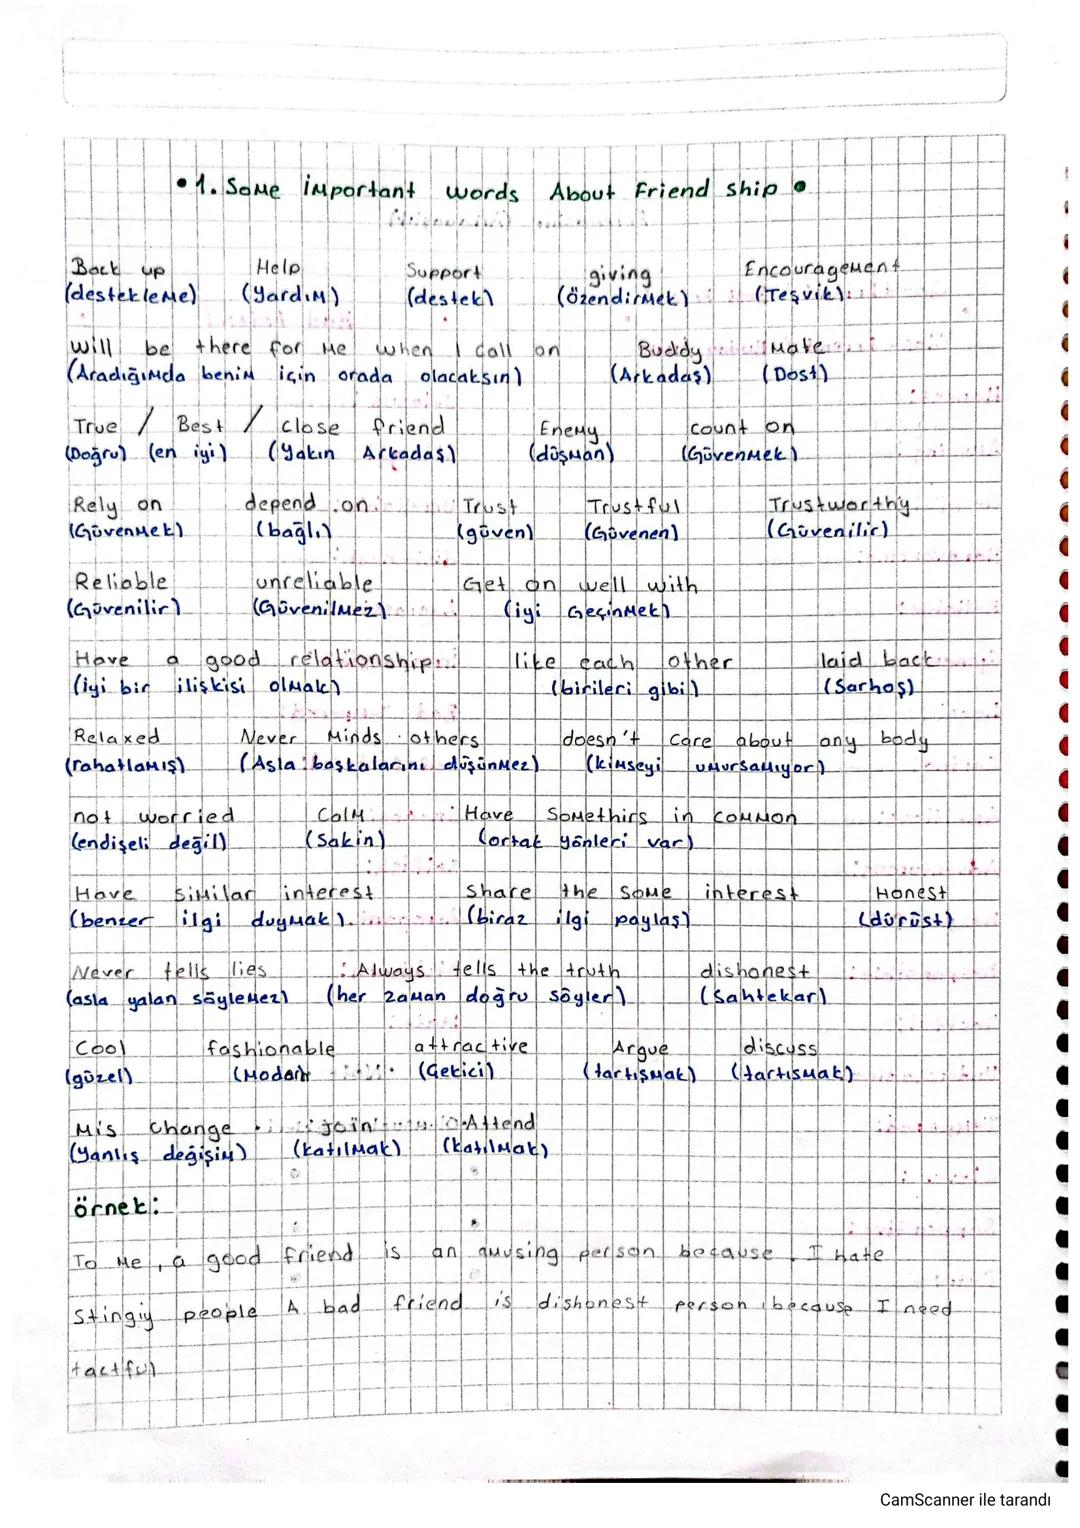 • 1. Some important words About Friend ship •
Back up Help Support giving Encouragement
(destekleme) (Yardım) (destek) (özendirmek) (Teşvik)
Will be there for me when I call on Buddy Mate
(Aradığımda benim için orada olacaksın) (Arkadaş) (Dost)
True / Best / close friend Enemy count on
(Doğru) (en iyi) (Yakın Arkadaş) (düşman) (Güvenmek)
Rely on depend on Trust Trustful Trustworthy
(Güvenmek) (bağlı) (güven) (Güvenen) (Güvenilir)
Reliable unreliable Get on well with
(Güvenilir) (Güvenilmez) (iyi Geçinmek)
Have a good relationship like each other laid back
(iyi bir ilişkisi olmak) (birileri gibi) (Sarhoş)
Relaxed Never Minds others doesn't care about any body
(rahatlamış) (Asla başkalarını düşünmez) (kimseyi umursamıyor)
not worried Calm Have Somethirs in common
(endişeli değil) (Sakin) (ortak yönleri var)
Have similar interest Share the some interest Honest
(benzer ilgi duymak) (biraz ilgi paylaş) (dürüst)
Never tells lies Always tells the truth dishonest
(asla yalan söylemez) (her zaman doğru söyler) (Sahtekar)
Cool fashionable attractive Argue discuss
(güzel) (Modern (Çekici) (tartışmak) (tartısmak)
Mis change join Attend
(Yanlış değişim) (katılmak) (katılmak)
örnek:
To me, a good friend is an amusing person because I hate
Stingiy people A bad friend is dishonest person because I need
tactful
CamScanner ile tarandı